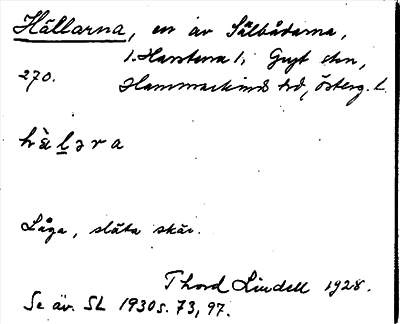 Hällarna, en av Sälbådarna,
i Harstena i, Gryt skn,
270. Hammarkinds hd, Österg. l.
hälәra
Låga, släta skär.
Thord Lindell 1928.
Se äv. SL 1930 s. 73, 97.